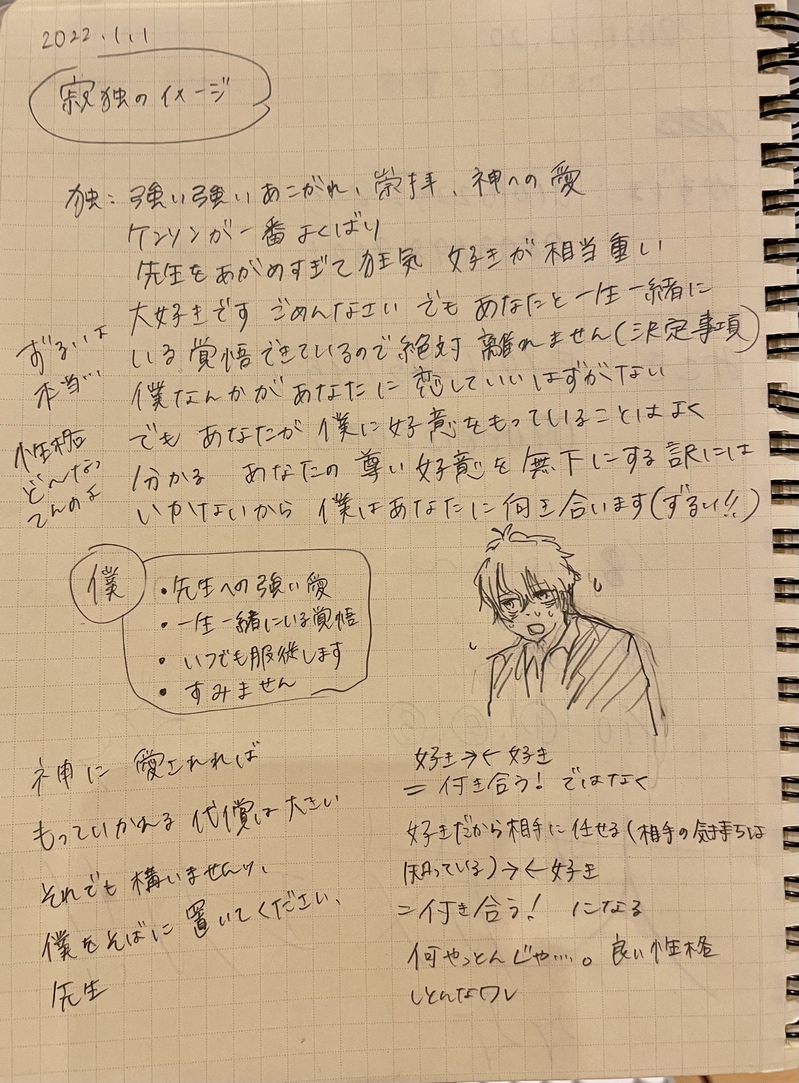 2022.1.1
寂独のイメージ
独：強い強いあこがれ、崇拝、神への愛
ケンソンが一番よくばり
先生をあがめすぎて狂気 好きが相当重い
大好きです ごめんなさい でも あなたと一生一緒に
いる覚悟できているので絶対 離れません(決定事項)
僕なんかがあなたに恋していいはずがない
でも あなたが 僕に好意をもっていることはよく
分かる あなたの尊い好意を無下にする訳には
いかないから 僕はあなたに向き合います(ずるい!!)
ずるいは
本当い
性格
ど〜なっ
てんのよ
僕
・先生への強い愛
・一生一緒にいる覚悟
・いつでも服従します
・すみません
神に愛されれば
もっていかれる代償は大きい
それでも構いませんッ、
僕をそばに置いてください、
先生
好き→←好き
＝付き合う！ではなく
好きだから相手に任せる(相手の気持ちは
知っている)→←好き
＝付き合う！ になる
何やっとんじゃ…。良い性格
しとんなワレ